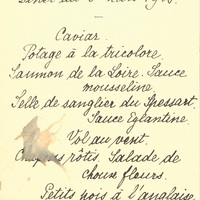 Caviar.
Potage à la tricolore.
Saumon de la Loire. Sauce
mousseline
Selle de sanglier du Spessart.
Sauce Eglantine.
Vol au vent.
rôtis. Salade de
choux fleurs.
Petits pois à l'anglaise.